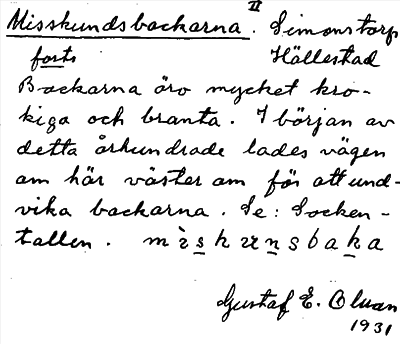 Misskundsbackarna. II Simonstorp
forts Hällestad
Backarna äro mycket kro-
kiga och branta. I början av
detta århundrade lades vägen
om här väster om för att und-
vika backarna. Se: Socken-
tallen.
Gustaf E. Olsson
1931